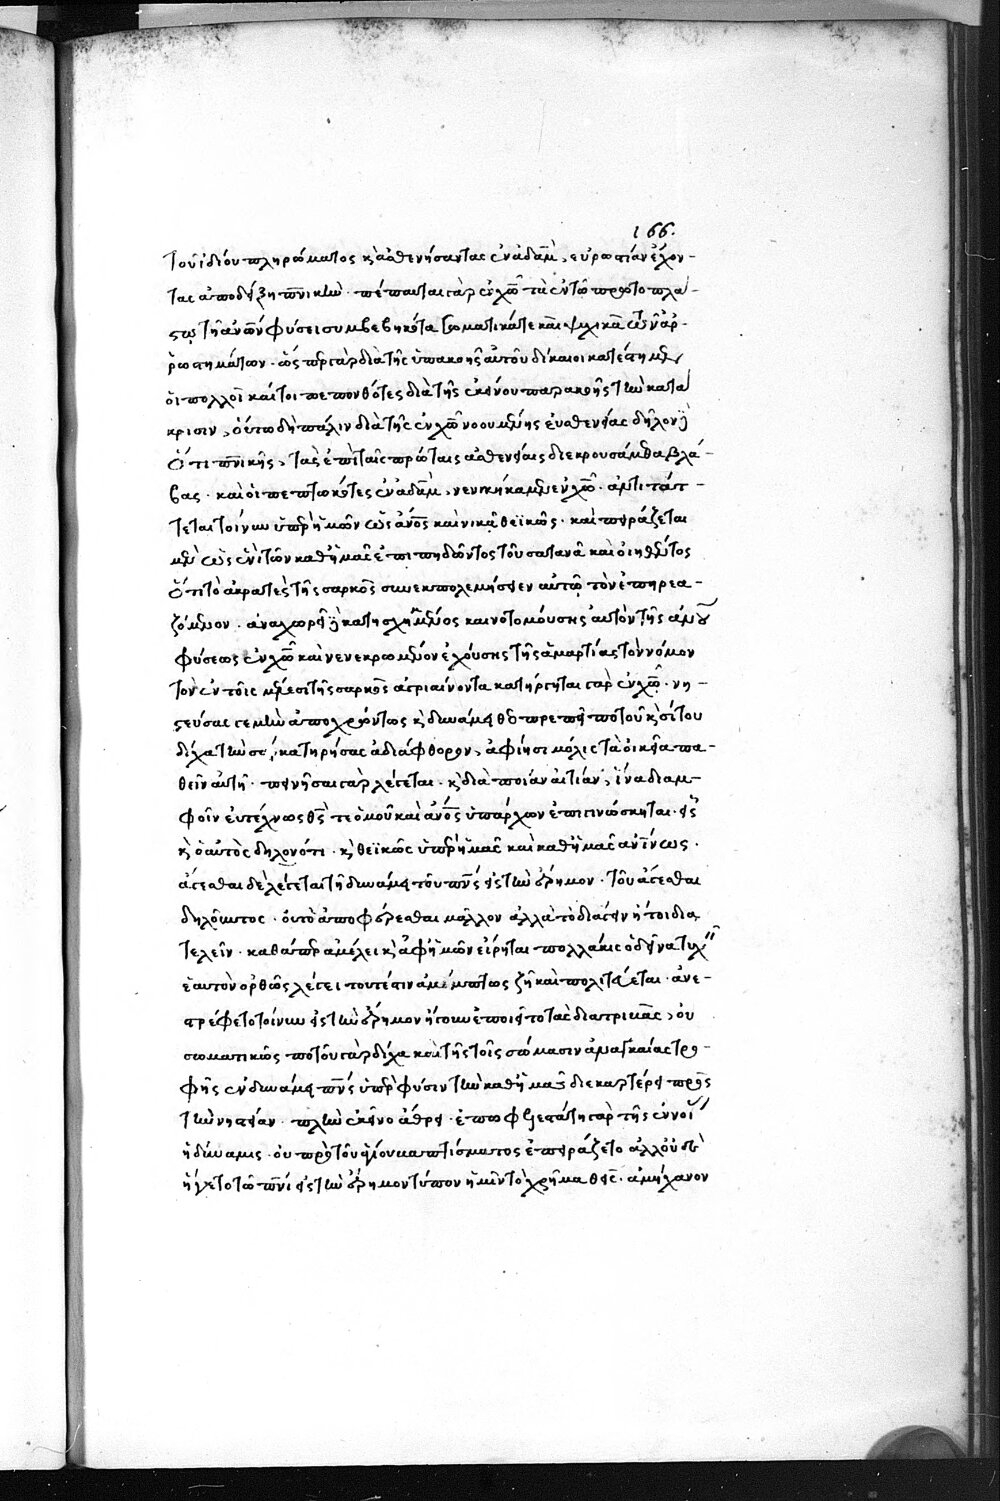 166.
τοῦ ἰδίου πληρώματος κ̀ ἀσθενήσαντας ἐν ἀδὰμ, εὐρωστίαν ἔχον-
τας ἀποδείξῃ πν̅ικήν. πέπαυται γὰρ ἐν χω̅ τὰ ἐν τῶ πρωτοπλά-
στῳ τῇ ἀνω̅ν φύσει συμβεβηκότα σωματικά τε καὶ ψυχικὰ τῶν ἀρ-
ρωστημάτων. ὥσπερ γὰρ διὰ τῆς ὑπακοῆς αὐτοῦ δίκαιοι κατέστημεν
οἱ πολλοὶ καίτοι πεπονθότες διὰ τῆς ἐκείνου παρακοῆς τὴν κατά
κρισιν, οὕτω δὴ πάλιν διὰ τῆς ἐν χω̅ νοουμένης εὐσθενείας δηλονό
ὅτι πν̅ικῆς, τὰς ἐπὶ ταῖς πρώταις ἀσθενείαις διεκρουσάμεθα βλά-
βας. καὶ οἱ πεπτωκότες ἐν ἀδὰμ, νενικήκαμεν ἐν χω̅. ἀντιτάτ-
τεται τοίνυν ὑπὲρ ἡμῶν ὡς ἀνο̅ς καὶ νικᾷ θεϊκῶς. καὶ πειράζεται
μὲν ὡς ἐν ἴσῳ τῶν καθ' ἡμᾶς ἐπιπηδῶντος τοῦ σατανᾶ καὶ οἰηθέντος
ὅτι τὸ ἀκρατὲς τῆς σαρκὸς συνεκπολεμήσειεν αὐτῷ τὸν ἐπηρεα-
ζόμενον. ἀναχωρεῖ κατῃσχυμμένος καινοτομούσης ἑαυτὸν τῆς ἀνου
φύσεως ἐν χω̅ καὶ νενεκρωμένον ἐχούσης τῆς ἁμαρτίας τὸν νόμον
τὸν ἐν τοῖς μέλεσι τῆς σαρκὸς ἀγριαίνοντα κατήργηται γὰρ ἐν χω̅. νη-
στεύσας γε μὴν ἀποχρώντως κ̀ δυνάμει θεοπρεπεῖ ποτοῦ κ̀ σίτου
δίχα τὴν σάρκα τηρήσας ἀδιάφθορον, ἀφίησι μόλις τὰ οἰκεῖα πα-
θεῖν αὐτῇ. πεινῆσαι γὰρ λέγεται. κ̀ διὰ ποίαν αἰτίαν; ἵνα δι' ἀμ-
φοῖν εὐτέχνως θς̅ τε ὁμοῦ καὶ ἄνο̅ς ὑπάρχων ἐπιγινώσκηται. εἷς
κ̀ ὁ αὐτὸς δηλονότι. κ̀ θεϊκῶς ὑπὲρ ἡμᾶς καὶ καθ' ἡμᾶς ἀνίνως.
ἄγεσθαι δὲ λέγεται τῇ δυνάμει τοῦ πν̅ς εἰς τὴν ἔρημον. τοῦ ἄγεσθαι
δηλοῦντος. οὐ τὸ ἀποφέρεσθαι μᾶλλον ἀλλὰ τὸ διάγειν ἤτοι δια
τελεῖν. καθάπερ ἀμέλει κ̀ ἐφ' ἡμῶν εἴρηται πολλάκις ὁ δεῖνα τυχὸν
ἑαυτὸν ὀρθῶς λέγει τουτέστιν ἀμέμπτως ζῆ καὶ πολιτεύεται. ἀνε-
στρέφετο τοίνυν εἰς τὴν ἔρημον ἤγουν ἐποιεῖτο τὰς διατριβάς, οὐ
σωματικῶς ποτοῦ γὰρ δίχα καὶ τῆς τοῖς σώμασιν ἀναγκαίας τρο-
φῆς ἐν δυνάμει πν̅ς ὑπὲρ φύσιν τὴν καθ' ἡμᾶς διεκαρτέρει πρὸς
τὴν νηστείαν. πλὴν ἐκεῖνο ἄθρει. ἐπωφελεστάτη γὰρ τῆς ἐννοίας
ἡ δύναμις. οὐ πρὸ τοῦ ἁγίου βαπτίσματος ἐπειράζετο ἀλλ' οὐδὲ
ἤγετο τῶ πν̅ι εἰς τὴν ἔρημον τύπον ἡμῖν τὸ χρῆμα θείς. ἀμήχανον